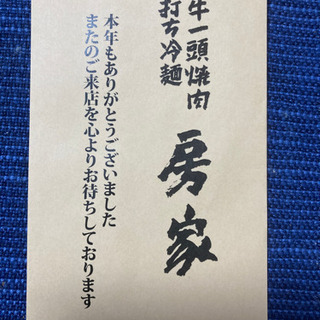 牛一頭焼肉
打ち冷麺
房家
本年もありがとうございました
またのご来店を心よりお待ちしております